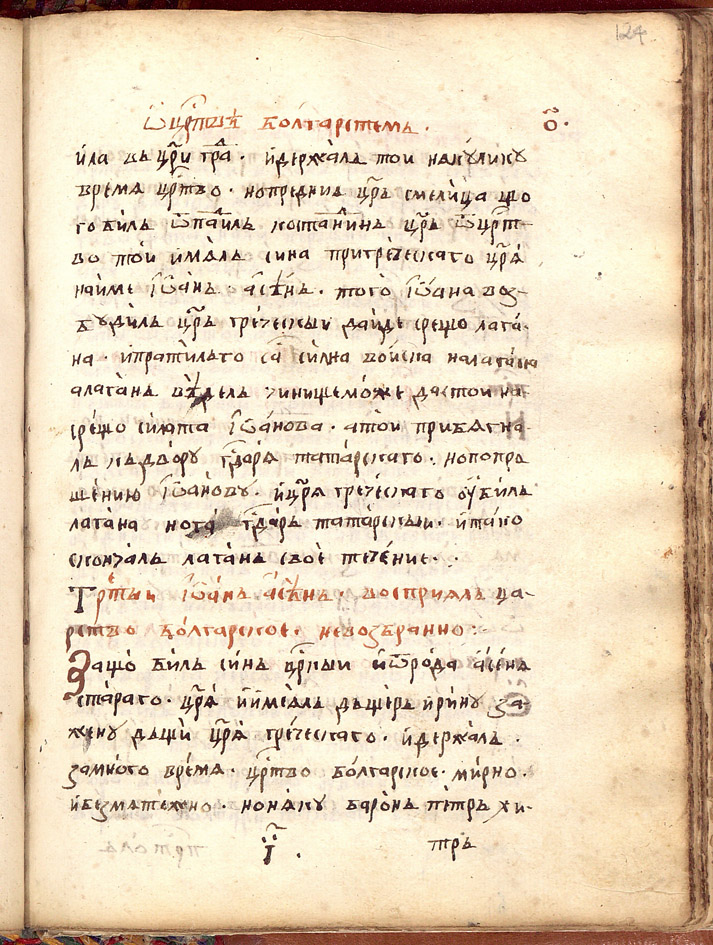 124
Ѡ цр҃твѣ Болгарстемъ . о҃ .
йла въ цр҃и гра̑ . и҆держалъ тои наколику
время цр҃тво . нопредние цр҃ь смелица що
го билъ ѿпаилъ костан̾инь цр҃ь ѿцр҃т-
во тои имялъ сина пригрѣческаго цр҃я
найме Іѡ҆анъ асѣнь . того Іѡ҆ана воз-
будилъ цр҃ь греческыи дайде срещо лага-
на . ипратильго са̑ силна воиска налагана
алаганъ вѣдель чинищеможе дастои на
срещо силюта Іѡ҆анова . атои прибягна-
лъ къдвору гд҃аря татарскаго . нопопро
шению Іѡ҆анову . и҆ цр҃я греческаго оу҆билъ
лагана нога гд҃арь татарскыи . и҆тако
скончалъ лаганъ свое течение .
Трет҃ыи Іѡ҆анъ асѣнь . восприялъ ца-
рство Болгарское . невозбранно :
Защо билъ синь цр҃кыи иѿрода асеня
стараго . цр҃я иимеалъ дъщерь ирину за-
жену дъщи цр҃я греческаго . и҆держалъ .
замного время . цр҃тво болгарское . мирно .
и҆безмятежно . ноняку баронъ петръ хи-
І҃ . тръ